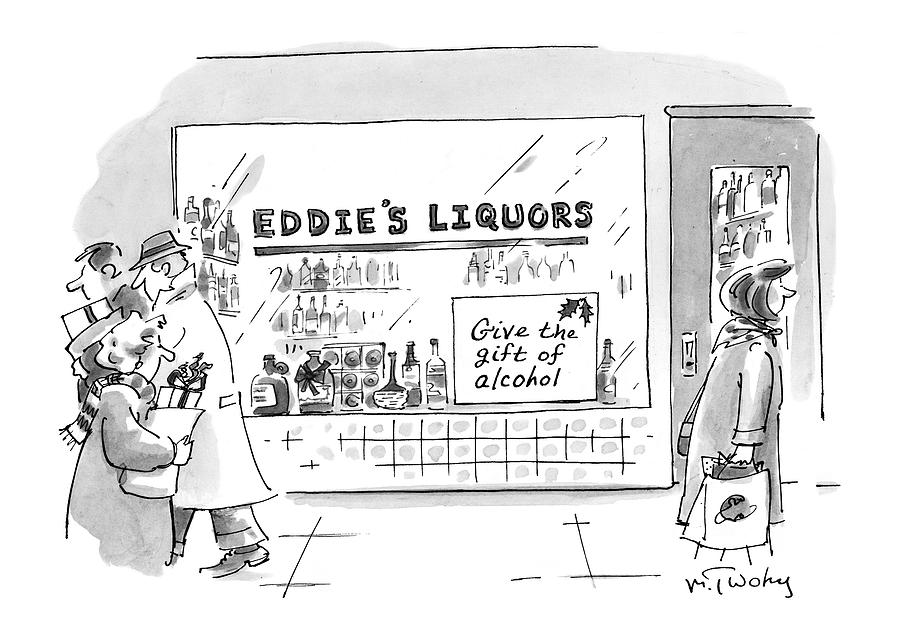 EDDIE'S LIQUORS
Give the
gift of
alcohol
M. Twohy